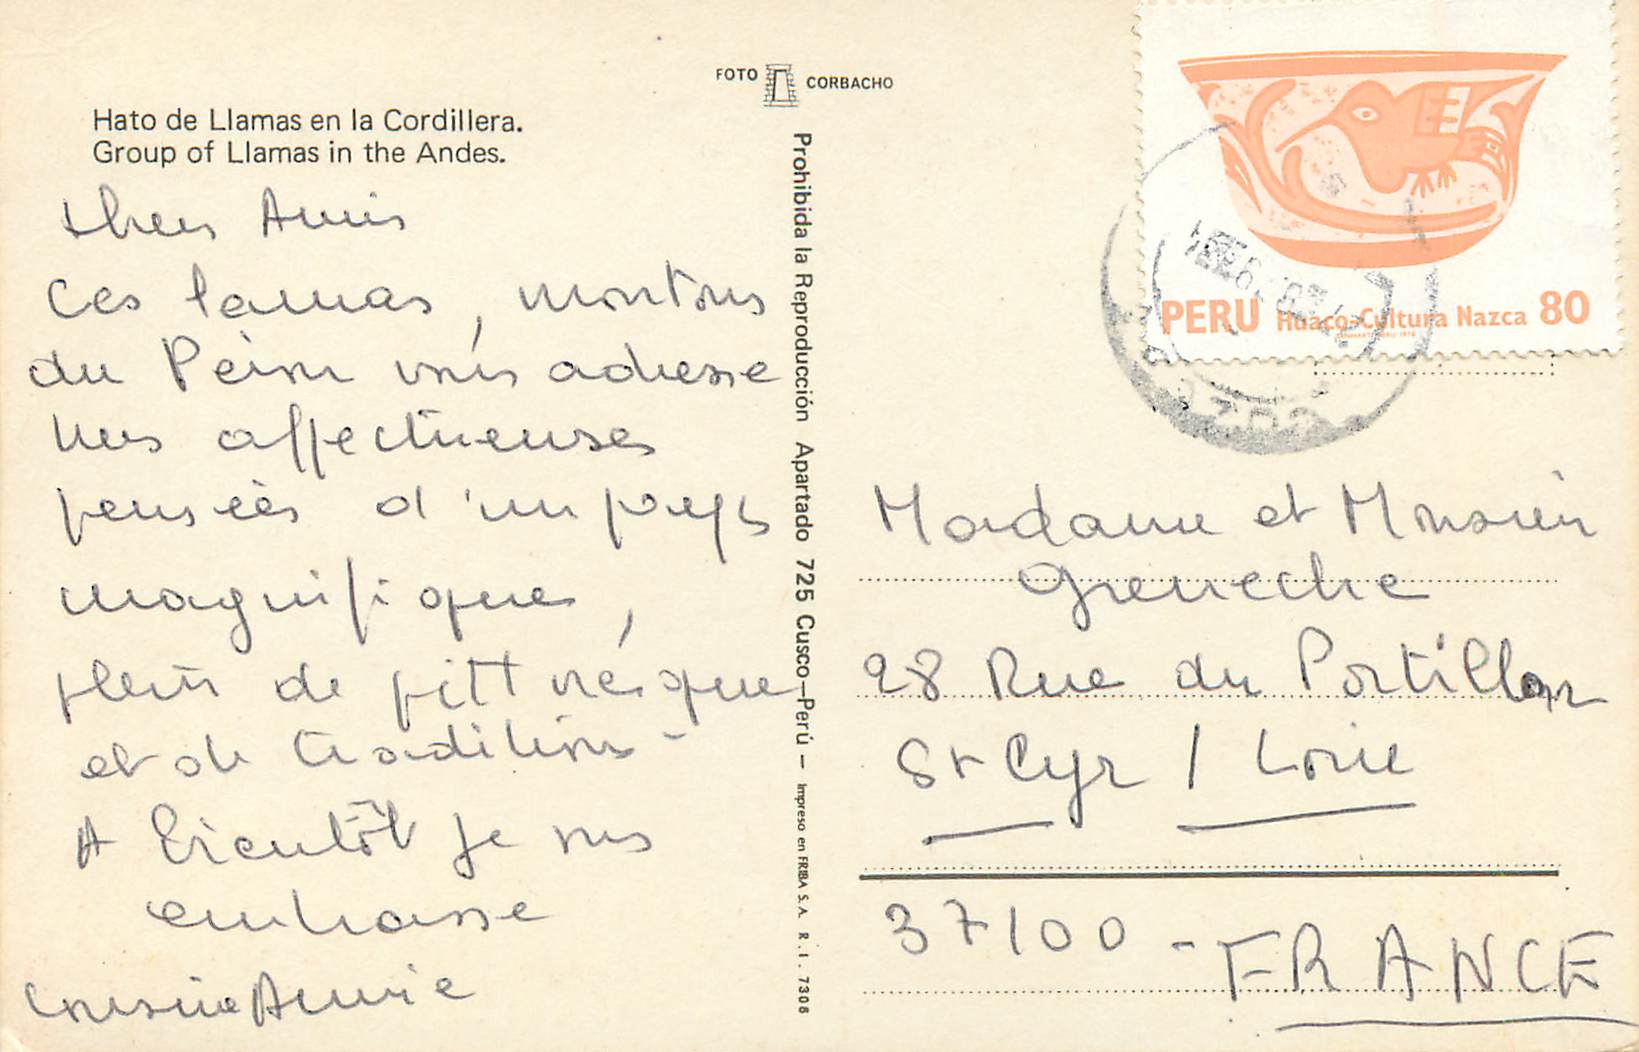 Hato de Llamas en la Cordillera.
Group of Llamas in the Andes.
Chers Amis
Ces lamas, montons
du Pérou vous adresse
mes affectueuses
pensées d'un pays
magnifique,
plein de pittoresque
et de traditions -
A bientôt je vous
embrasse
cousine Annie
FOTO CORBACHO
Prohibida la Reproducción Apartado 725 Cusco-Perú - Impreso en FRIBA S.A. R.I. 7308
PERU Huaco-Cultura Nazca 80
Madame et Monsieur
Greneche
28 Rue du Portillon
St Cyr / Loire
37100 - FRANCE